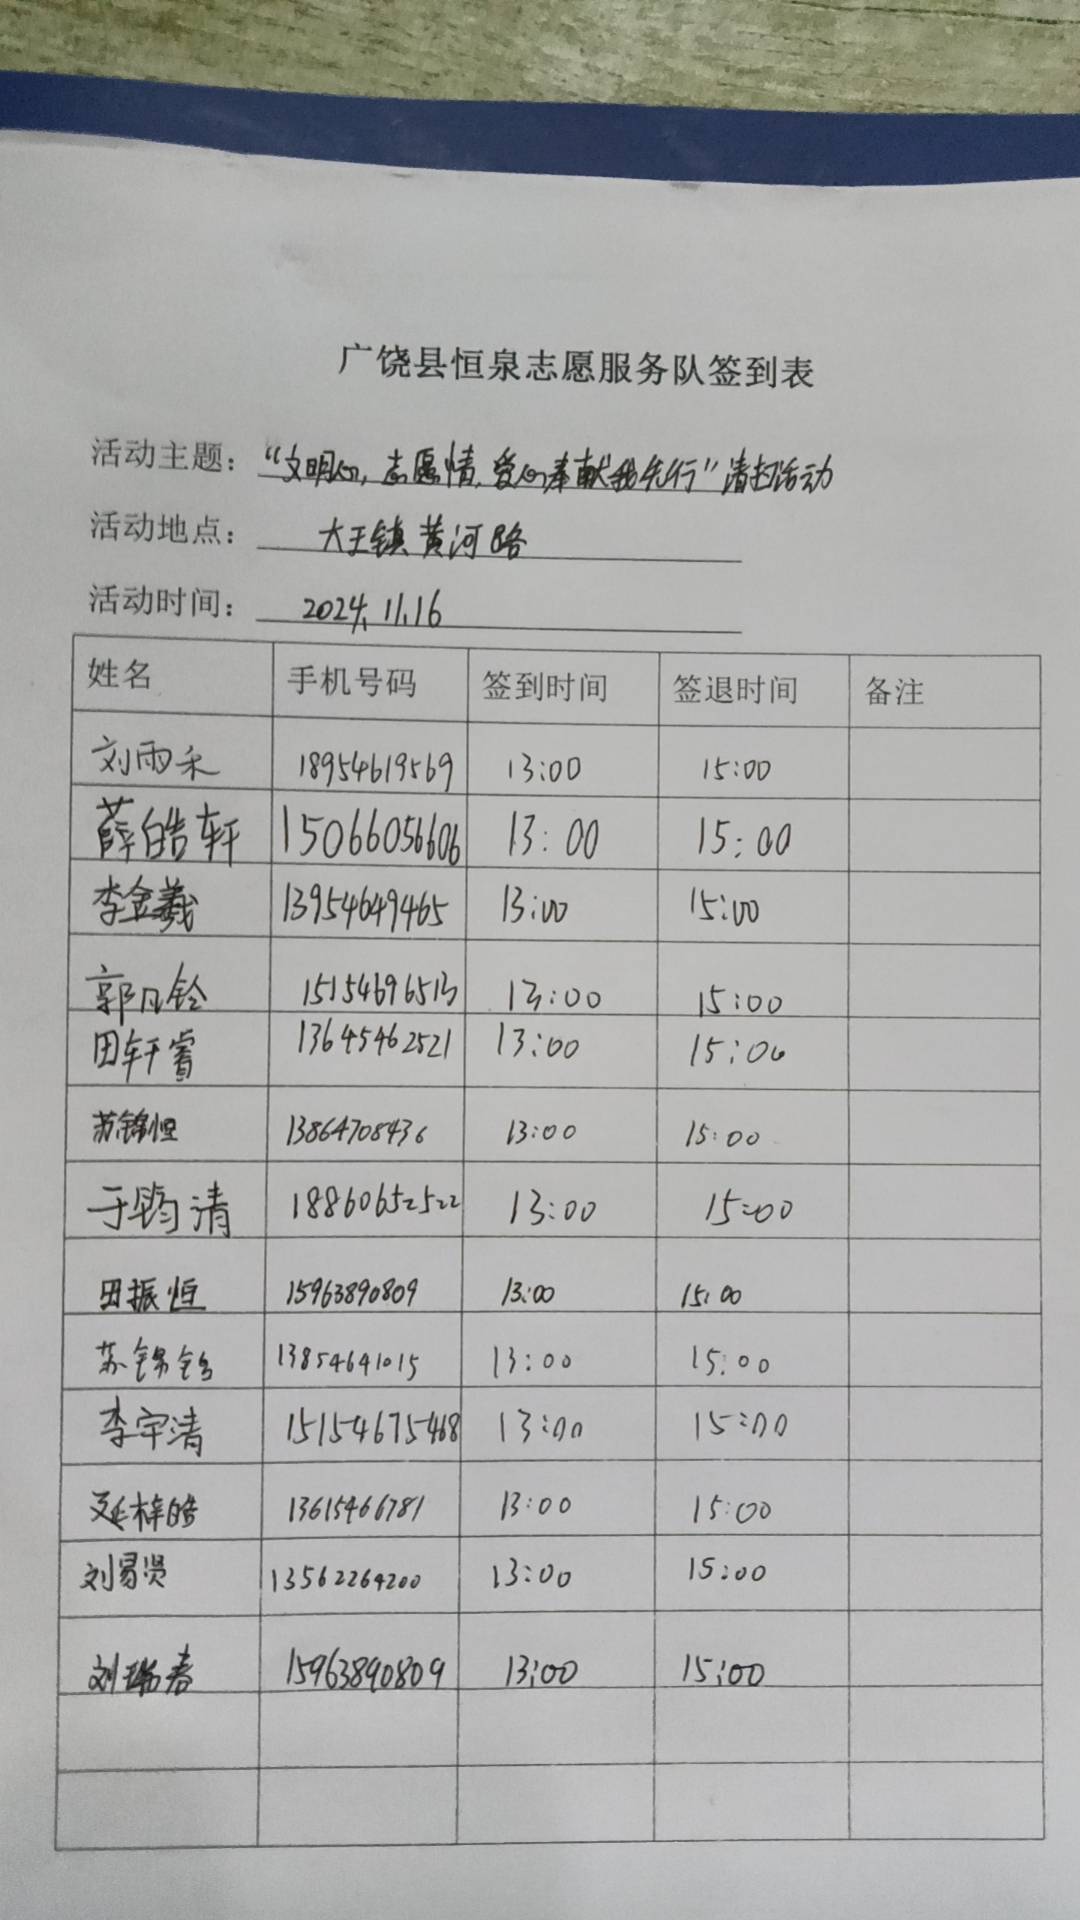 广饶县恒泉志愿服务队签到表
活动主题：“文明心，志愿情，爱心奉献我先行”清扫活动
活动地点：大王镇黄河路
活动时间：2024.11.16
姓名 手机号码 签到时间 签退时间 备注
刘雨禾 18954619569 13:00 15:00
薛皓轩 15066056606 13:00 15:00
李金羲 13954649465 13:00 15:00
郭凡铃 15154696513 13:00 15:00
田轩睿 13645462521 13:00 15:00
苏锦恒 13864708436 13:00 15:00
于钧清 18860652522 13:00 15:00
田振恒 15963890809 13:00 15:00
苏锦 13854641015 13:00 15:00
李宇清 15154675468 13:00 15:00
延梓皓 13615466781 13:00 15:00
刘易贤 13562264200 13:00 15:00
刘瑞春 15963890809 13:00 15:00